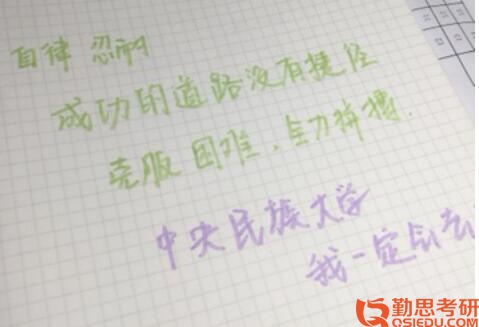 自律 忍耐
成功的道路没有捷径
克服困难,全力拼搏.
中央民族大学
我一定会去
勤思考研
QSIEDU.COM